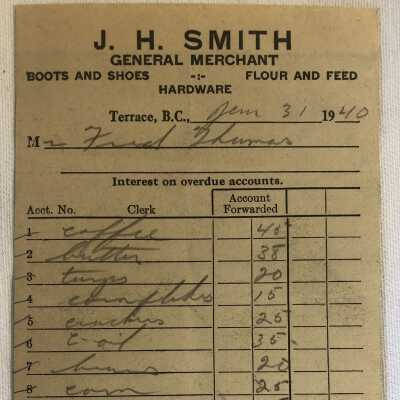 J. H. SMITH
GENERAL MERCHANT
BOOTS AND SHOES -:- FLOUR AND FEED
HARDWARE
Terrace, B.C., Jan 31 1940
Mr Fred Thomas
Interest on overdue accounts.
Acct. No. Clerk Account Forwarded
1 coffee 45
2 butter 38
3 20
4 cornflakes 15
5 crackers 25
6 c-oil 35
7 beans 20
8 corn 25